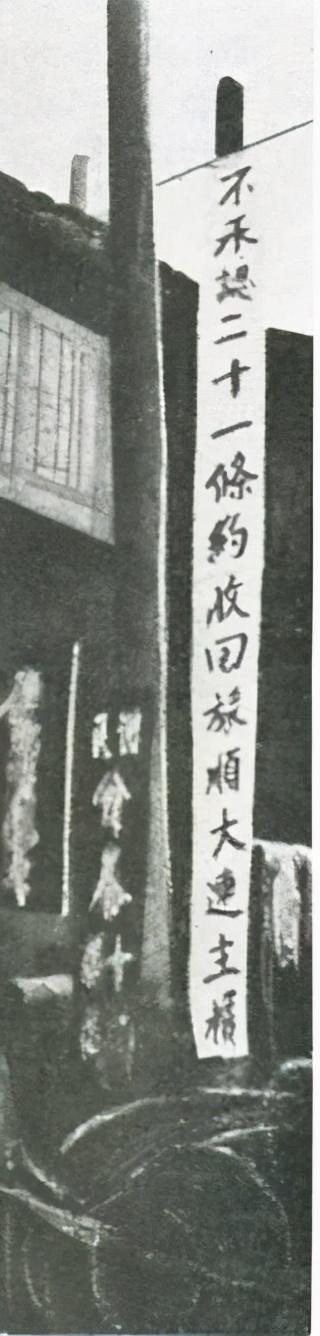 不承認二十一條約收回旅順大連主權